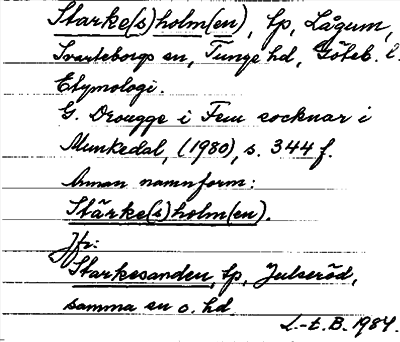 Starke(s)holm(en), tp, Lågum,
Svarteborgs sn, Tunge hd, Göteb. l.
Etymologi.
G. Drougge i Fem socknar i
Munkedal, (1980), s. 344 f.
Annan namnform:
Stärke(s)holm(en).
Jfr:
Starkesanden, tp, Julseröd,
samma sn o. hd.
L.-t. B. 1984.